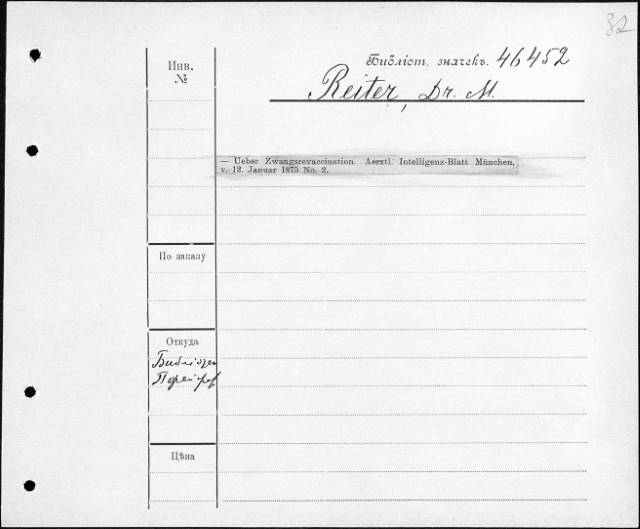 32
Инв.
№
Библіот. значекъ. 46452
Reiter, Dr. M.
— Ueber Zwangsrevaccination. Aerztl. Intelligenz-Blatt München,
v. 12. Januar 1875 No. 2.
По заказу
Откуда
Цѣна